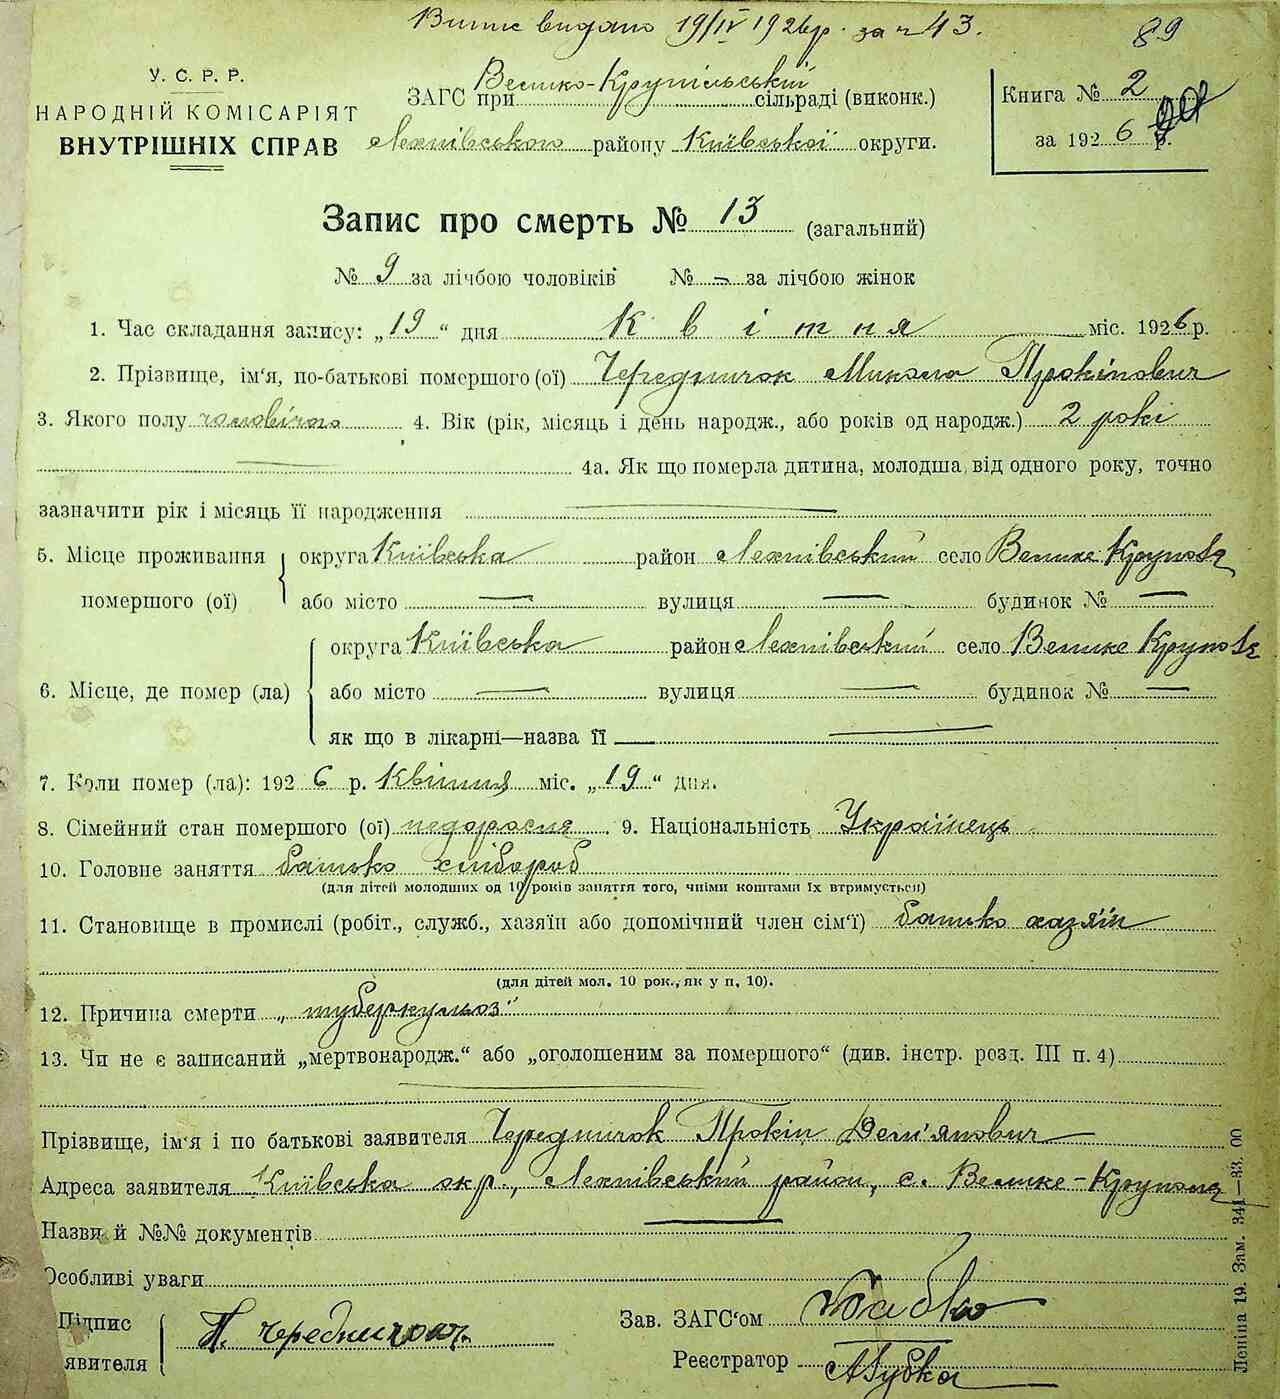 Витяг видано 19/IV 1926р. за ч 43.
89
У. С. Р. Р.
НАРОДНІЙ КОМІСАРІЯТ
ВНУТРІШНІХ СПРАВ
ЗАГС при Велико-Крупільській сільраді (виконк.)
Яготівського району Київської округи.
Книга № 2
за 1926 р.
Запис про смерть № 13 (загальний)
№ 9 за лічбою чоловіків № – за лічбою жінок
1. Час складання запису: „19“ дня Квітня міс. 1926 р.
2. Прізвище, ім‘я, по-батькові помершого (ої) Чередничок Микола Прокіпович
3. Якого полу чоловічого 4. Вік (рік, місяць і день народж., або років од народж.) 2 рокі
4а. Як що померла дитина, молодша від одного року, точно
зазначити рік і місяць її народження
5. Місце проживання помершого (ої) округа Київська район село Велике Крупове
або місто — вулиця — будинок № —
6. Місце, де помер (ла) округа Київська район село Велике Крупове
або місто — вулиця — будинок № —
як що в лікарні—назва її
7. Коли помер (ла): 1926 р. Квітня міс. „19“ дня.
8. Сімейний стан помершого (ої) недоросля 9. Національність Українець
10. Головне заняття батько хлібороб
(для дітей молодших од 10 років заняття того, чиїми коштами їх втримується)
11. Становище в промислі (робіт., служб., хазяїн або допомічний член сім‘ї) батько хазяїн
(для дітей мол. 10 рок., як у п. 10).
12. Причина смерти „туберкульоз“
13. Чи не є записаний „мертвонародж.“ або „оголошеним за помершого“ (див. інстр. розд. III п. 4)
Прізвище, ім‘я і по батькові заявителя Чередничок Прокіп Дем'янович
Адреса заявителя Київська окр., район, с. Велике-Круполе
Назви й №№ документів
Особливі уваги
Підпис
явителя
П. Чередничок
Зав. ЗАГС‘ом Бабко
Реєстратор АГубка
Леніна 19. Зам. 341—33. 00